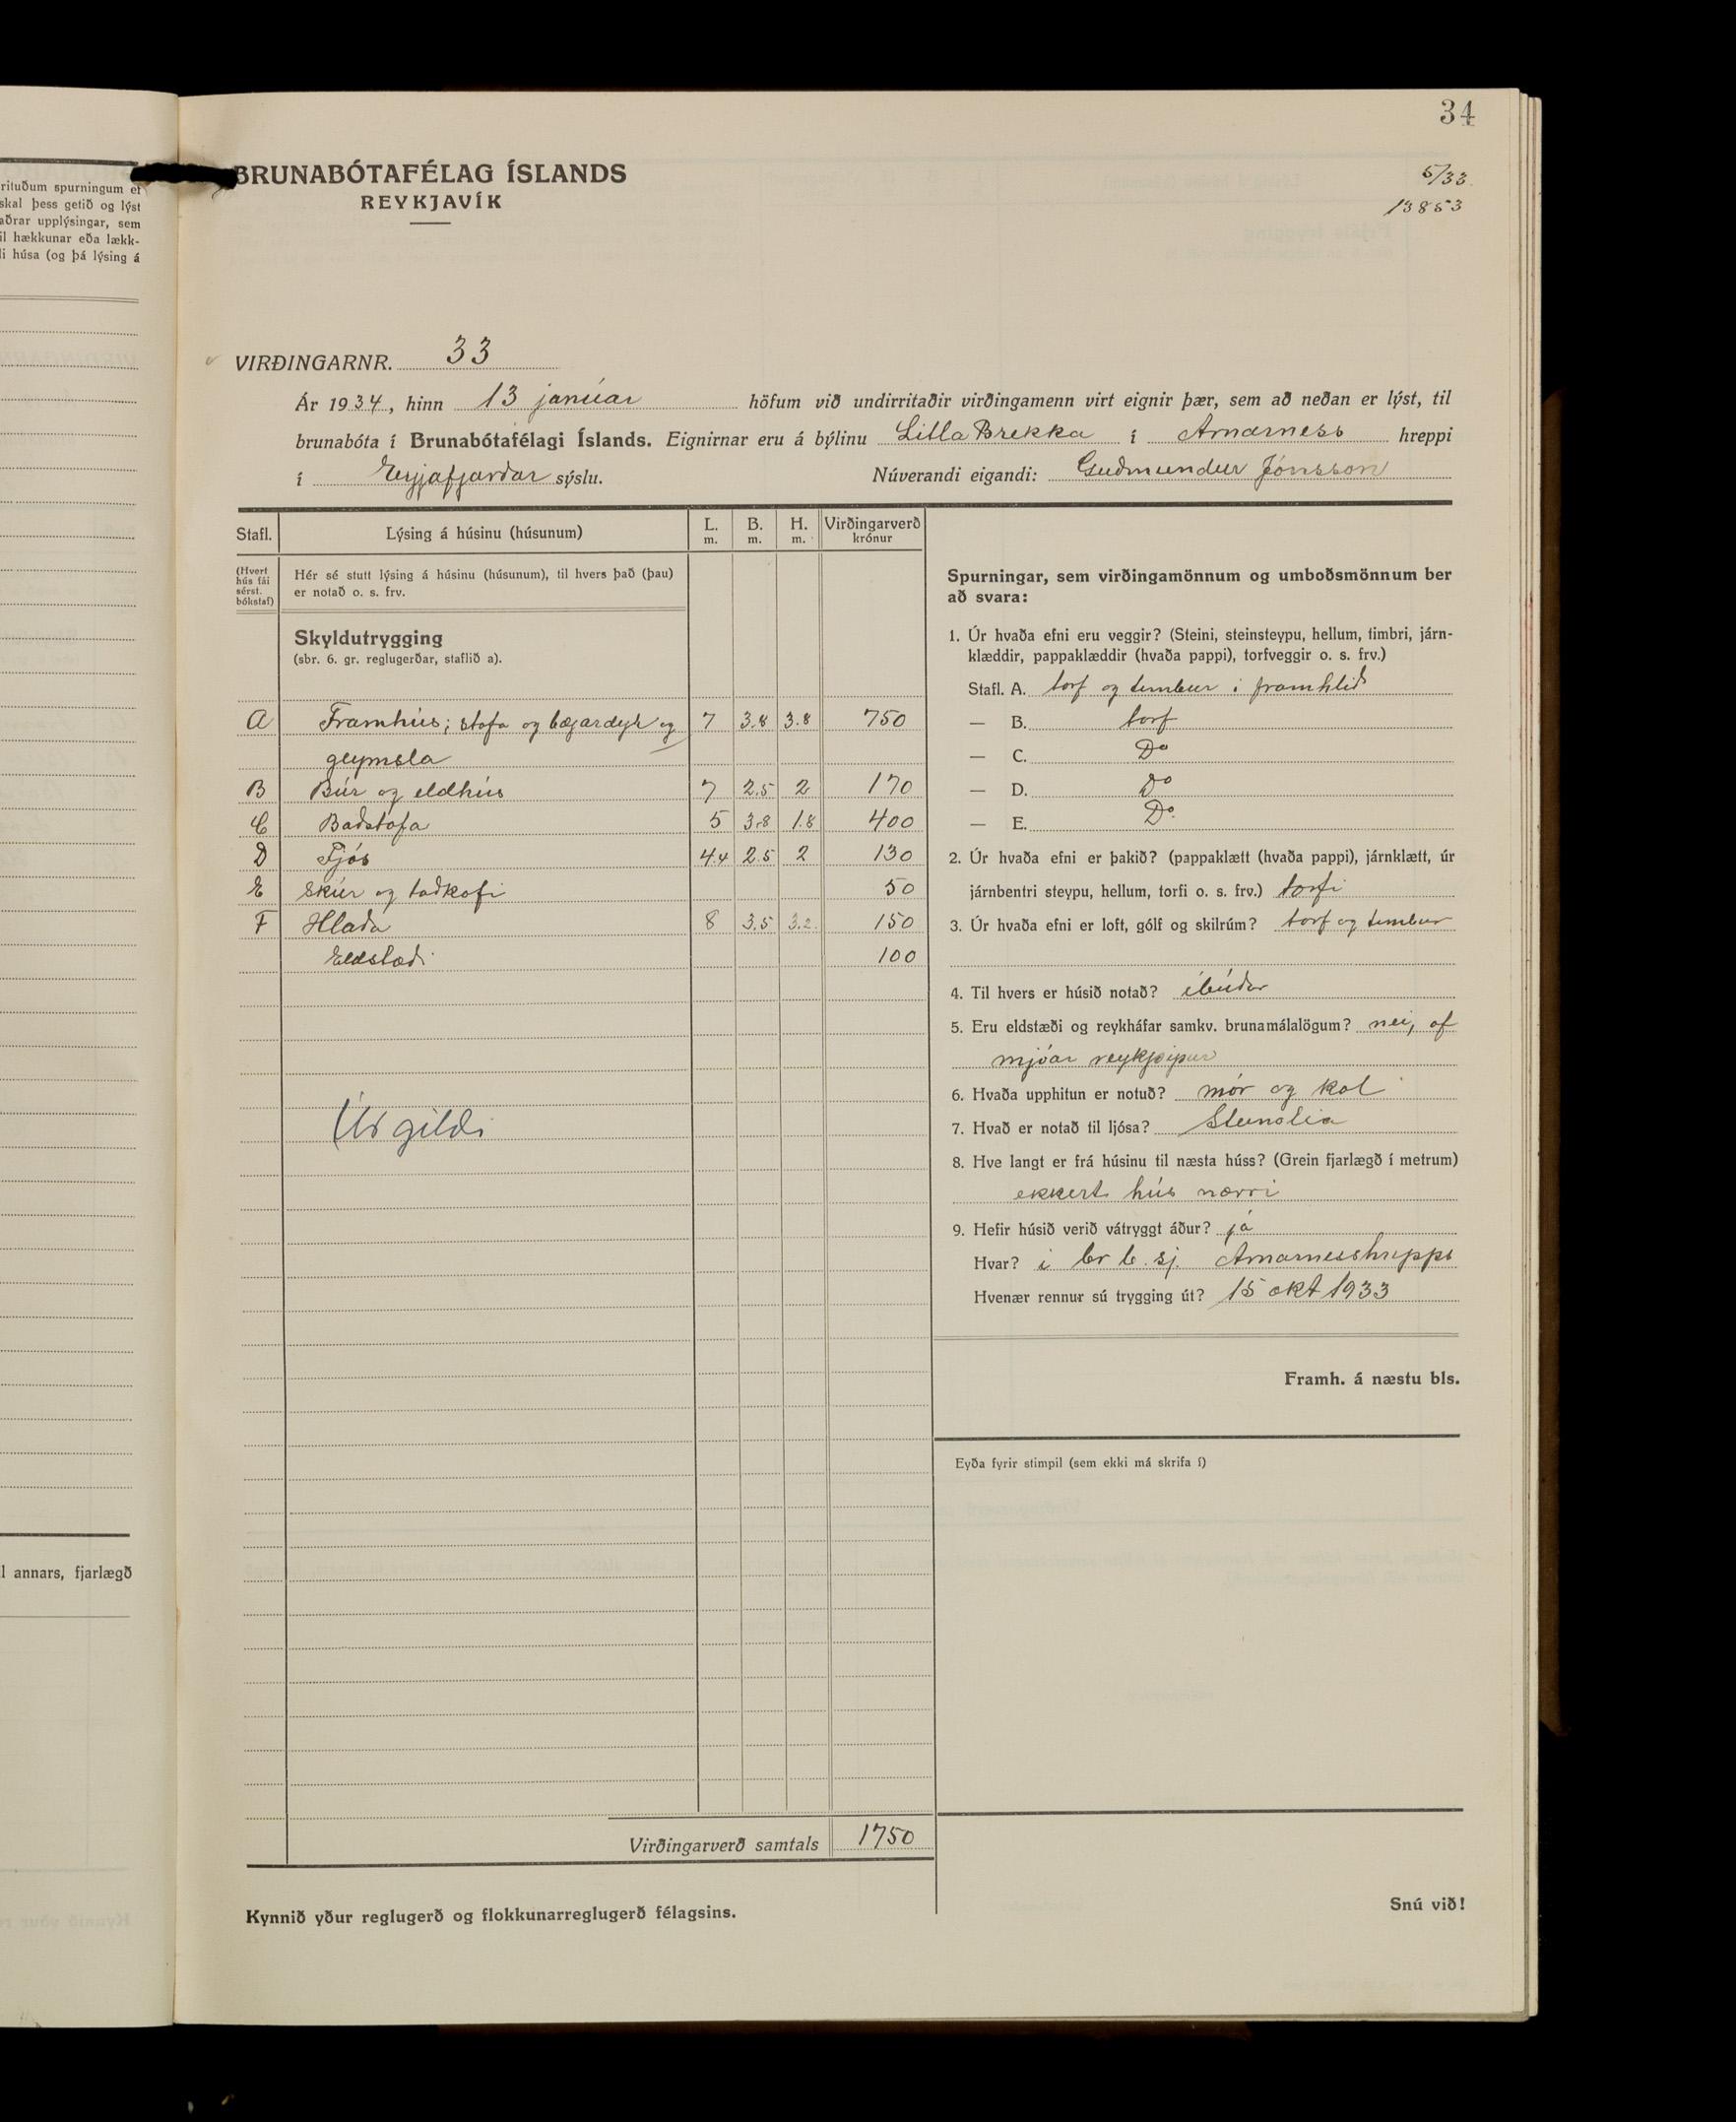 34
5/33
13853
rituðum spurningum ef
skal þess getið og lýst
aðrar upplýsingar, sem
il hækkunar eða lækk-
li húsa (og þá lýsing á
l annars, fjarlægð
BRUNABÓTAFÉLAG ÍSLANDS
REYKJAVÍK
VIRÐINGARNR. 33
Ár 1934, hinn 13 janúar höfum við undirritaðir virðingamenn virt eignir þær, sem að neðan er lýst, til
brunabóta í Brunabótafélagi Íslands. Eignirnar eru á býlinu Litla Brekka í Arnarness hreppi
í Eyjafjarðar sýslu. Núverandi eigandi: Guðmundur Jónsson
Stafl. Lýsing á húsinu (húsunum) L. m. B. m. H. m. Virðingarverð krónur
(Hvert hús fái sérst. bókstaf)
Hér sé stutt lýsing á húsinu (húsunum), til hvers það (þau)
er notað o. s. frv.
Skyldutrygging
(sbr. 6. gr. reglugerðar, staflið a).
A Framhús; stofa og bæjardyr og 7 3.8 3.8 750
geymsla
B Búr og eldhús 7 2.5 2 170
C Baðstofa 5 3.8 1.8 400
D Fjós 4.4 2.5 2 130
E Skúr og taðkofi 50
F Hlaða 8 3.5 3.2 150
Eldstæði 100
Úr gildi
Virðingarverð samtals 1750
Kynnið yður reglugerð og flokkunarreglugerð félagsins.
Spurningar, sem virðingamönnum og umboðsmönnum ber
að svara:
1. Úr hvaða efni eru veggir? (Steini, steinsteypu, hellum, timbri, járn-
klæddir, pappaklæddir (hvaða pappi), torfveggir o. s. frv.)
Stafl. A. torf og timbur í framhlið
— B. torf
— C. Do
— D. Do
— E. Do.
2. Úr hvaða efni er þakið? (pappaklætt (hvaða pappi), járnklætt, úr
járnbentri steypu, hellum, torfi o. s. frv.) torfi
3. Úr hvaða efni er loft, gólf og skilrúm? torf og timbur
4. Til hvers er húsið notað? íbúðar
5. Eru eldstæði og reykháfar samkv. brunamálalögum? nei, of
mjóar reykpípur
6. Hvaða upphitun er notuð? mór og kol
7. Hvað er notað til ljósa? Steinolía
8. Hve langt er frá húsinu til næsta húss? (Grein fjarlægð í metrum)
ekkert hús nærri
9. Hefir húsið verið vátryggt áður? já
Hvar? í br b. sj. Arnarneshrepps
Hvenær rennur sú trygging út? 15 okt 1933
Framh. á næstu bls.
Eyða fyrir stimpil (sem ekki má skrifa í)
Snú við!